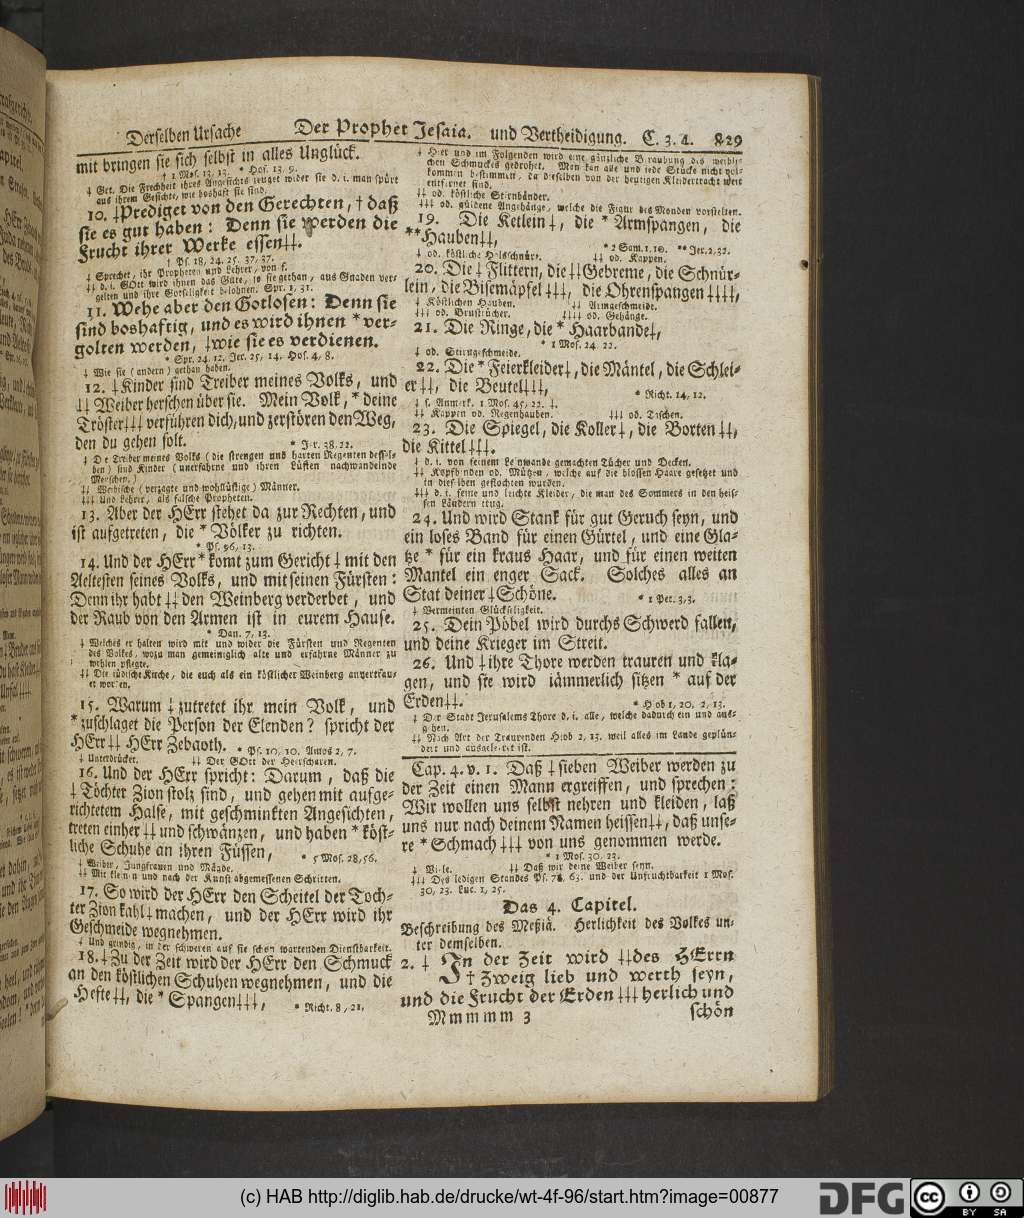 Derselben Ursache Der Prophet Jesaia. und Vertheidigung. C. 3. 4. 829
mit bringen sie sich selbst in alles Unglück.
† 1 Mos. 13, 13. * Hos. 13, 9.
‡ Get. Die Frechheit ihres Angesichts zeuget wider sie d. i. man spürt
aus ihrem Gesichte, wie boshaft sie sind.
10. ‡Prediget von den Gerechten, † daß
sie es gut haben: Denn sie werden die
Frucht ihrer Werke essen‡‡.
† Ps. 18, 24. 25. 37, 37.
‡ Sprechet, ihr Propheten und Lehrer, von s.
‡‡ d. i. GOtt wird ihnen das Gute, so sie gethan, aus Gnaden ver-
gelten und ihre Gotseligkeit belohnen. Spr. 1, 31.
11. Wehe aber den Gotlosen: Denn sie
sind boshaftig, und es wird ihnen * ver-
golten werden, ‡wie sie es verdienen.
* Spr. 24, 12. Jer. 25, 14. Hos. 4, 8.
‡ Wie sie (andern) gethan haben.
12. ‡Kinder sind Treiber meines Volks, und
‡‡ Weiber herschen über sie. Mein Volk, * deine
Tröster‡‡‡ verführen dich, und zerstören den Weg,
den du gehen solt. * Jer. 38, 22.
‡ Die Treiber meines Volks (die strengen und harten Regenten dessel-
ben) sind Kinder (unerfahrne und ihren Lüsten nachwandelnde
Menschen.)
‡‡ Weibische (verzagte und wohllüstige) Männer.
‡‡‡ Und Lehrer, als falsche Propheten.
13. Aber der HErr stehet da zur Rechten, und
ist aufgetreten, die * Völker zu richten.
* Ps. 96, 13.
14. Und der HErr * komt zum Gericht ‡ mit den
Aeltesten seines Volks, und mit seinen Fürsten:
Denn ihr habt ‡‡ den Weinberg verderbet, und
der Raub von den Armen ist in eurem Hause.
* Dan. 7, 13.
‡ Welches er halten wird mit und wider die Fürsten und Regenten
des Volks, wozu man gemeiniglich alte und erfahrne Männer zu
wehlen pflegte.
‡‡ Die jüdische Kirche, die euch als ein köstlicher Weinberg anvertrau-
et worden.
15. Warum ‡ zutretet ihr mein Volk, und
* zuschlaget die Person der Elenden? spricht der
HErr ‡‡ HErr Zebaoth. * Ps. 10, 10. Amos 2, 7.
‡ Unterdrücket. ‡‡ Der GOtt der Heerscharen.
16. Und der HErr spricht: Darum, daß die
‡ Töchter Zion stolz sind, und gehen mit aufge-
richtetem Halse, mit geschminkten Angesichten,
treten einher ‡‡ und schwänzen, und haben * köst-
liche Schuhe an ihren Füssen, * 5 Mos. 28, 56.
‡ Weiber, Jungfrauen und Mägde.
‡‡ Mit kleinen und nach der Kunst abgemessenen Schritten.
17. So wird der HErr den Scheitel der Toch-
ter Zion kahl ‡ machen, und der HErr wird ihr
Geschmeide wegnehmen.
‡ Und grindig, in der schweren auf sie schon wartenden Dienstbarkeit.
18. ‡ Zu der Zeit wird der HErr den Schmuck
an den köstlichen Schuhen wegnehmen, und die
Hefte ‡‡, die * Spangen‡‡‡, * Richt. 8, 21.
‡ Hier und im Folgenden wird eine gänzliche Beraubung des weibli-
chen Schmuckes gedrohet. Man kan alle und jede Stücke nicht vol-
kommen bestimmen, da dieselben von der heutigen Kleidertracht weit
entfernet sind.
‡‡ od. köstliche Stirnbänder.
‡‡‡ od. güldene Angehänge, welche die Figur des Monden vorstelten.
19. Die Ketlein‡, die * Armspangen, die
**Hauben‡‡, * 2 Sam. 1, 10. ** Jer. 2, 32.
‡ od. köstliche Halsschnüre. ‡‡ od. Kappen.
20. Die ‡ Flittern, die ‡‡ Gebreme, die Schnür-
lein, die Bisemäpfel ‡‡‡, die Ohrenspangen ‡‡‡‡,
‡ Köstlichen Hauben. ‡‡ Armgeschmeide.
‡‡‡ od. Brusttücher. ‡‡‡‡ od. Gehänge.
21. Die Ringe, die * Haarbande‡,
* 1 Mos. 24, 22.
‡ od. Stirngeschmeide.
22. Die * Feierkleider‡, die Mäntel, die Schlei-
er ‡‡, die Beutel‡‡‡, * Richt. 14, 12.
‡ s. Anmerk. 1 Mos. 45, 22. ‡.
‡‡ Kappen od. Regenhauben. ‡‡‡ od. Taschen.
23. Die Spiegel, die Koller‡, die Borten ‡‡,
die Kittel ‡‡‡.
‡ d. i. von feinem Leinwande gemachten Tücher und Decken.
‡‡ Kopfbinden od. Mützen, welche auf die blossen Haare gesetzet und
in dieselben geflochten wurden.
‡‡‡ d. i. feine und leichte Kleider, die man des Sommers in den heis-
sen Ländern trug.
24. Und wird Stank für gut Geruch seyn, und
ein loses Band für einen Gürtel, und eine Gla-
tze * für ein kraus Haar, und für einen weiten
Mantel ein enger Sack. Solches alles an
Stat deiner ‡ Schöne. * 1 Pet. 3, 3.
‡ Vermeinten Glückseligkeit.
25. Dein Pöbel wird durchs Schwerd fallen,
und deine Krieger im Streit.
26. Und ‡ ihre Thore werden trauren und kla-
gen, und sie wird jämmerlich sitzen * auf der
Erden‡‡. * Hiob 1, 20. 2, 13.
‡ Der Stadt Jerusalems Thore d. i. alle, welche dadurch ein und aus-
gehen.
‡‡ Nach Art der Traurenden Hiob 2, 13. weil alles im Lande geplün-
dert und ausgeleeret ist.
Cap. 4. v. 1. Daß ‡ sieben Weiber werden zu
der Zeit einen Mann ergreiffen, und sprechen:
Wir wollen uns selbst nehren und kleiden, laß
uns nur nach deinem Namen heissen‡‡, daß unse-
re * Schmach ‡‡‡ von uns genommen werde.
* 1 Mos. 30, 23.
‡ Viele. ‡‡ Daß wir deine Weiber seyn.
‡‡‡ Des ledigen Standes Ps. 78, 63. und der Unfruchtbarkeit 1 Mos.
30, 23. Luc. 1, 25.
Das 4. Capitel.
Beschreibung des Meßiä. Herlichkeit des Volkes un-
ter demselben.
2. ‡ In der Zeit wird ‡‡des HErrn
† Zweig lieb und werth seyn,
und die Frucht der Erden ‡‡‡ herlich und
Mmmmm 3 schön
(c) HAB http://diglib.hab.de/drucke/wt-4f-96/start.htm?image=00877
DFG
cc BY SA